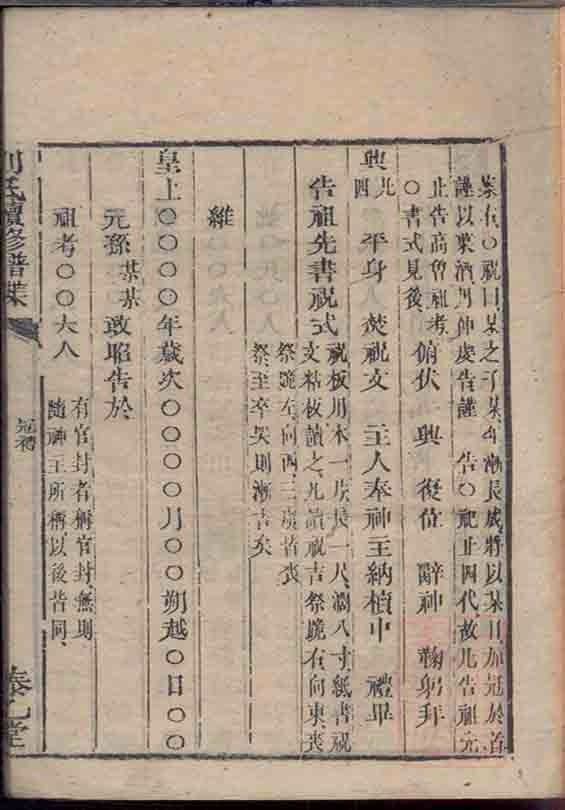 某右○祝曰某之子某年漸長成將以某日加冠於首
謹以菓酒用伸虔告謹告○祀止四代故凡告祖先
止告高曾祖考俯伏興復位辭神鞠躬拜
○書式見後
興凡四平身焚祝文主人奉神主納櫝中禮畢
告祖先書祝式祝板用木一片長一尺濶八寸紙書祝
文粘板讀之凡讀祝吉祭跪右向東喪
祭跪左向西三虞皆喪
祭至卒哭則漸吉矣
維
皇上○○○○年歲次○○○○月○○朔越○日○○
元孫某某敢昭告於
祖考○○大人有官封者稱官封無則
隨神主所稱以後皆同
劉氏續修譜牒
冠禮